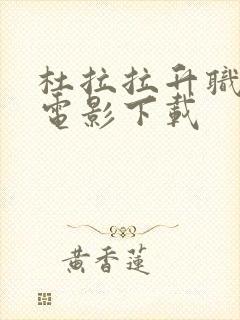 杜拉拉升職
電影下載
黃香蓮